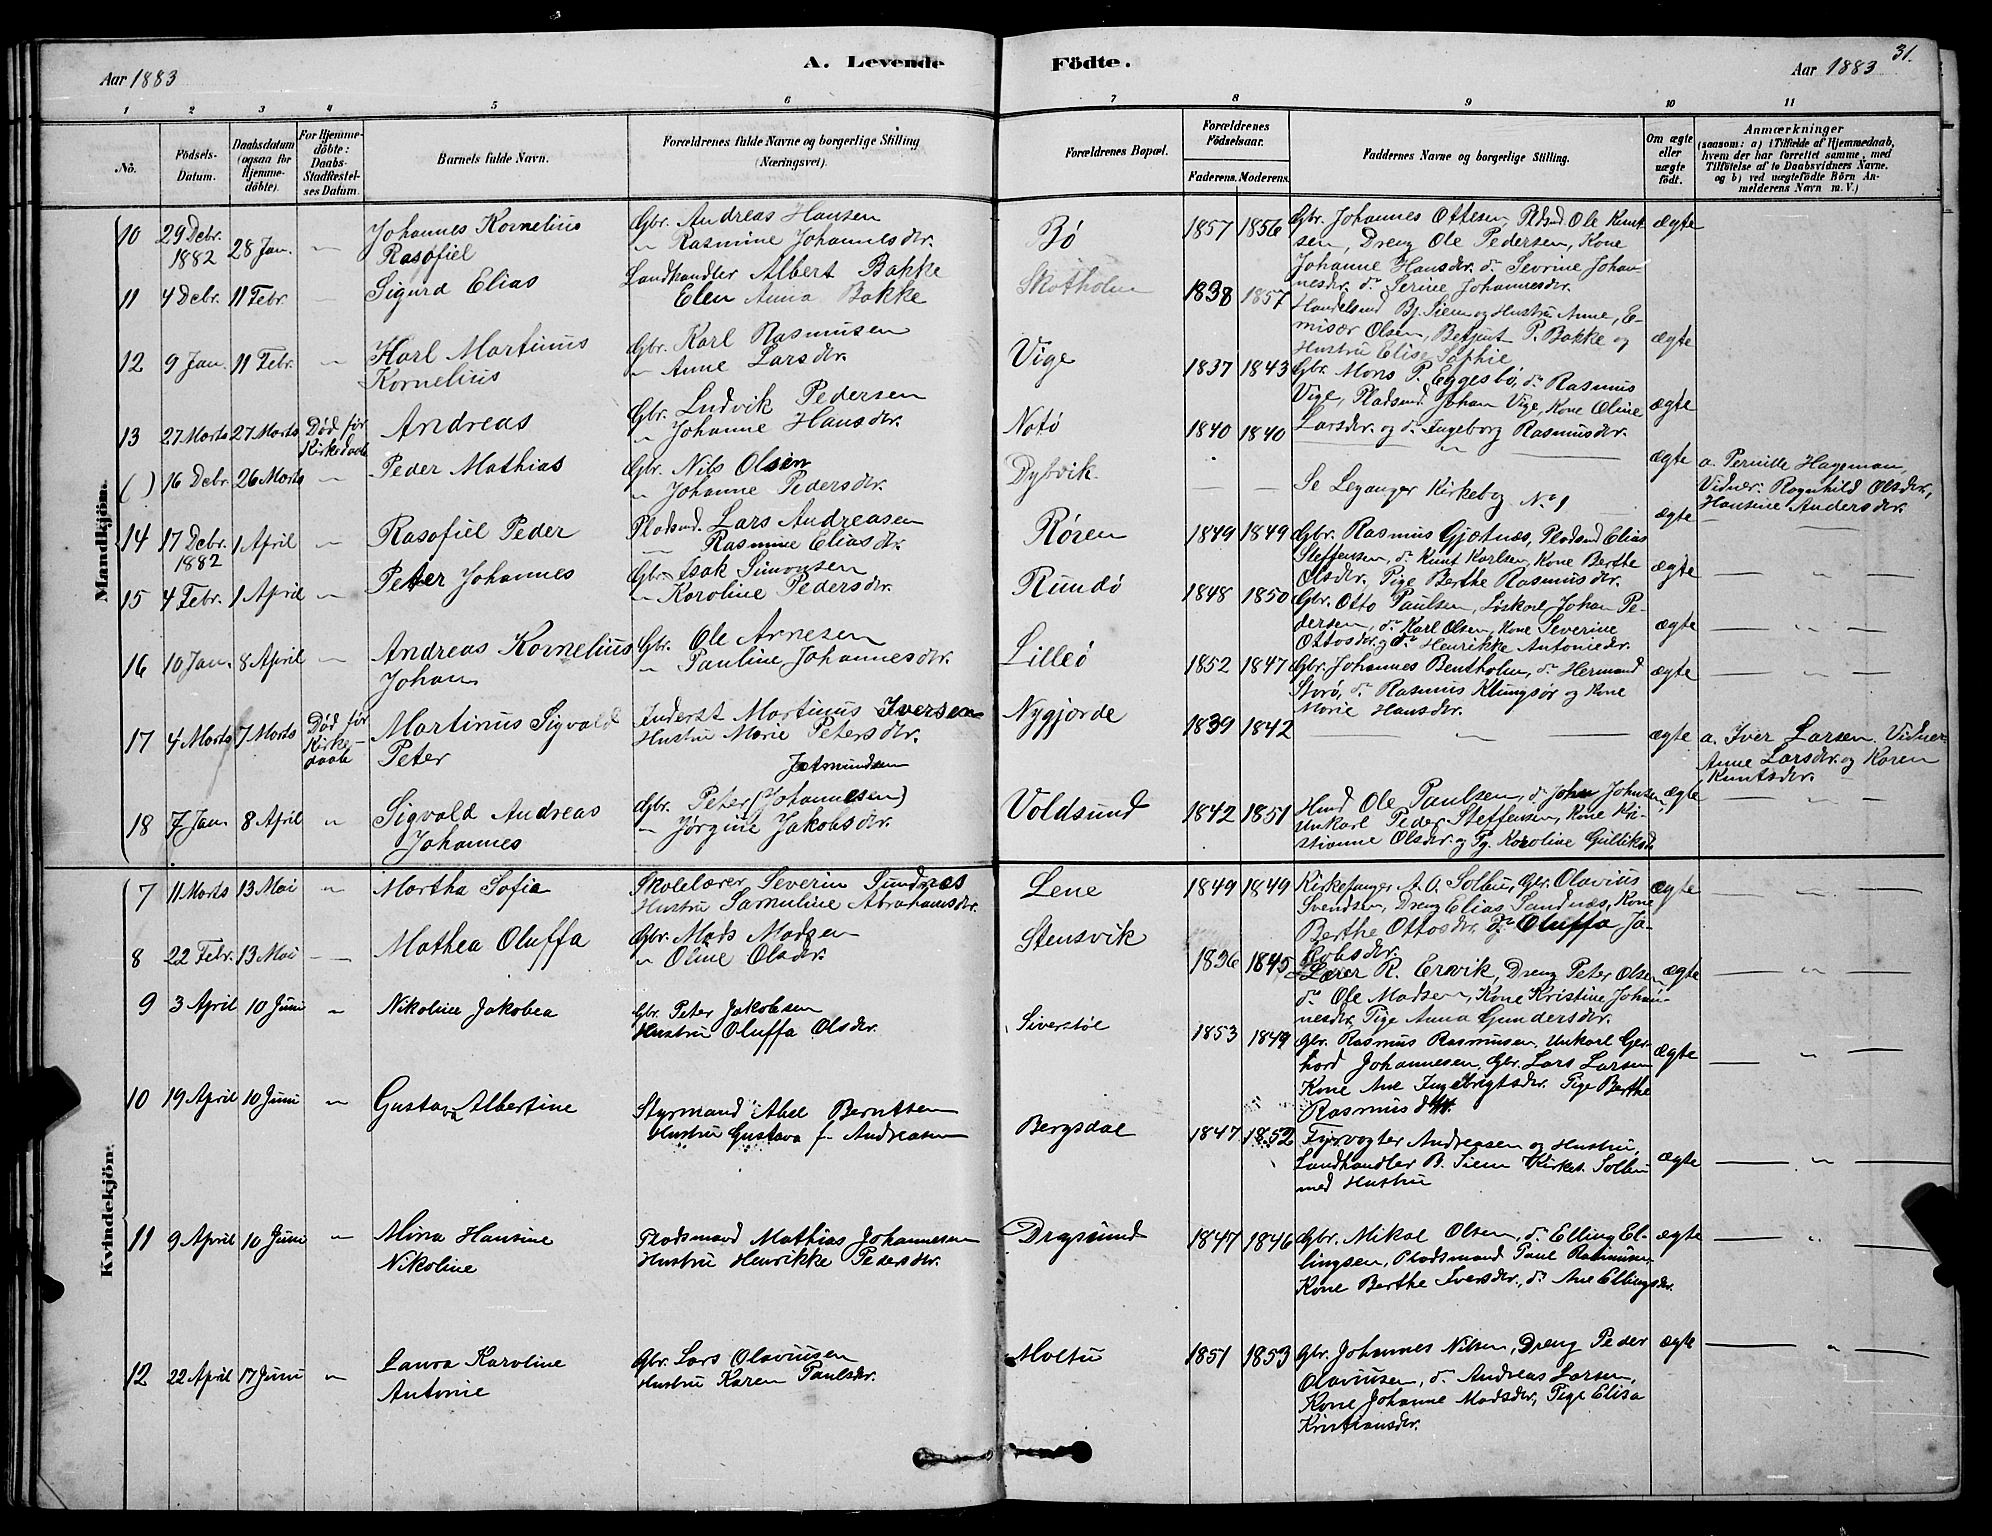 Aar 1883
A. Levende
Födte.
Aar 1883
31.
1 2 3 4 5 6 7 8 9 10 11
No.
Födsels-
Datum.
Daabsdatum
(ogsaa for
Hjemme-
döbte).
For Hjemme-
döbte:
Daabs-
Stadfæstel-
ses Datum.
Barnets fulde Navn.
Forældrenes fulde Navne og borgerlige Stilling
(Næringsvei).
Forældrenes Bopæl.
Forældrenes
Födselsaar.
Faderens. Moderens.
Faddernes Navne og borgerlige Stilling.
Om ægte
eller
uægte
födt.
Anmærkninger
(saasom: a) i Tilfælde af Hjemmedaab,
hvem der har forrettet samme, med
Tilföielse af to Daabsvidners Navne.
og b) ved uægtefödte Börn An-
melderens Navn m. V.)
Mandkjön.
10 29 Debr. 1882 28 Jan. "
Johannes Kornelius
Rasofiel
Gbr. Andreas Hansen
" Rasmine Johannesdtr.
Bø
1857 1856
Gbr. Johannes Ottesen, Pldsmd. Ole Knut-
sen, Dreng Ole Pedersen, Kone
Johanne Hansdtr. do Sevrine Johan-
nesdtr. do Serine Johannesdtr.
ægte
11 4 Debr. 11 Febr.
Sigurd Elias
Landhandler Albert Bakke
Elen Anna Bakke
Skotholm
1838 1857
Handelsmd Bj. Siem og Hustru Anne, E-
misær Olsen, Betjent P. Bakke og
Hustru Elise Sophie
ægte
12 9 Jan. 11 Febr. "
Karl Martinus
Kornelius
Gbr. Karl Rasmusen
" Anne Larsdtr.
Vige
1837 1843
Gbr. Mons P. Eggesbø, do Rasmus
Vige, Pladsmd. Johan Vige, Kone Oline
Larsdtr. og do Ingeborg Rasmusdtr.
ægte
13 27 Marts 27 Marts
Død før
Kirkedaab
Andreas
Gbr. Ludvik Pedersen
" Johanne Hansdtr.
Notø
1840 1840
"
ægte
a. Pernille Hageman,
Vidner: Ragnhild Olsdtr.,
Hansine Andersdtr.
( ) 16 Debr. 26 Marts "
Peder Mathias
Gbr. Nils Olsen
" Johanne Pedersdtr.
Dybvik
Se Leganger Kirkebog No 1
ægte
14 17 Debr. 1882 1 April "
Rasofiel Peder
Pladsmd. Lars Andreasen
Rasmine Eliasdtr.
Røren
1849 1849
Gbr. Rasmus Gjøtnes, Pladsmd Elias
Steffensen, do Knut Karlsen, Kone Berthe
Olsdtr, Pige Berthe Rasmusdtr.
ægte
15 4 Febr. 1 April "
Peter Johannes
Gbr. Isak Simonsen
" Karoline Pedersdtr.
Rundø
1848 1850
Gbr. Otto Paulsen, Løskarl Johan Pe-
dersen, do Karl Olsen, Kone Severine
Ottosdtr. og do Henrikke Antoniedtr.
ægte
16 10 Jan. 8 April
Andreas Kornelius
Johan
Gbr. Ole Arnesen
" Pauline Johannesdtr.
Lilleø
1852 1847
Gbr. Johannes Bentholm, do Hermand
Storø, do Rasmus Klungsør og Kone
Marie Hansdtr.
ægte
17 4 Marts 7 Marts
Død før
Kirke-
daab
Martinus Sigvald
Peter
Inderst Martinus Iversen
Hustru Marie Petersdtr.
Nygjorde
1839 1842
"
ægte
a. Iver Larsen. Vidner
Anne Larsdtr. og Karen
Knutsdtr.
18 7 Jan. 8 April "
Sigvald Andreas
Johannes
Jetmundsen
Gbr. Peter (Johannesen)
" Jørgine Jakobsdtr.
Voldsund
1842 1851
Hmd Ole Paulsen, do John Johnsen,
Unkarl Peder Steffensen, Kone Kri-
stianne Olsdtr. og Pg. Karoline Gulliksd.
ægte
Kvindekjön.
7 11 Marts 13 Mai "
Martha Sofia
Skolelærer Severin Sundnæs
Hustru Samuline Abrahamsdtr.
Lene
1849 1849
Kirkesanger A. O. Solbu, Gbr. Olavius
Svendsen, Dreng Elias Sandnæs, Kone
Berthe Ottosdtr. do Oluffa Ja-
kobsdtr.
ægte
8 22 Febr. 13 Mai
Mathea Oluffa
Gbr. Mads Madsen
" Oline Olsdtr.
Stensvik
1836 1845
Lærer R. Ervik, Dreng Peter Olsen
do Ole Madsen, Kone Kristine Johan-
nesdtr, Pige Anna Gundersdtr.
ægte
9 3 April 10 Juni "
Nikoline Jakobea
Gbr. Peter Jakobsen
Hustru Oluffa Olsdtr.
Siverstøl
1853 1849
Gbr. Rasmus Rasmusen, Unkarl Ger-
hard Johannesen, Gbr. Lars Larsen
Kone Ane Ingebrigtsdtr. Pige Berthe
Rasmusdtr.
ægte
10 19 April 10 Juni "
Gustava Albertine
Styrmand Abel Berntsen
Hustru Gustava f. Andreasen
Bergsdal
1847 1852
Fyrvogter Andreasen og Hustru,
Landhandler B. Siem Kirkes. Solbu
med Hustru
ægte
11 9 April 10 Juni "
Mina Hansine
Nikoline
Pladsmand Mathias Johannesen
Hustru Henrikke Pedersdtr.
Dragsund
1847 1846
Gbr. Mikal Olsen, do Elling El-
lingsen, Pladsmand Paul Rasmusen
Kone Berthe Iversdtr., do Ane Ellingsdtr.
ægte
12 22 April 17 Juni "
Laura Karoline
Antonie
Gbr. Lars Olaviusen
Hustru Karen Paulsdtr.
Moltu
1851 1853
Gbr. Johannes Nilsen, Dreng Peder
Olaviusen, do Andreas Larsen,
Kone Johanne Madsdtr, Pige Elisa
Kristiansdtr.
ægte